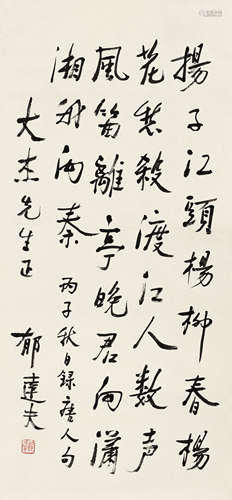 揚子江頭楊柳春楊
花愁殺渡江人数声
風笛離亭晚君向瀟
湘我向秦 丙子秋日録唐人句
大杰先生正 郁達夫